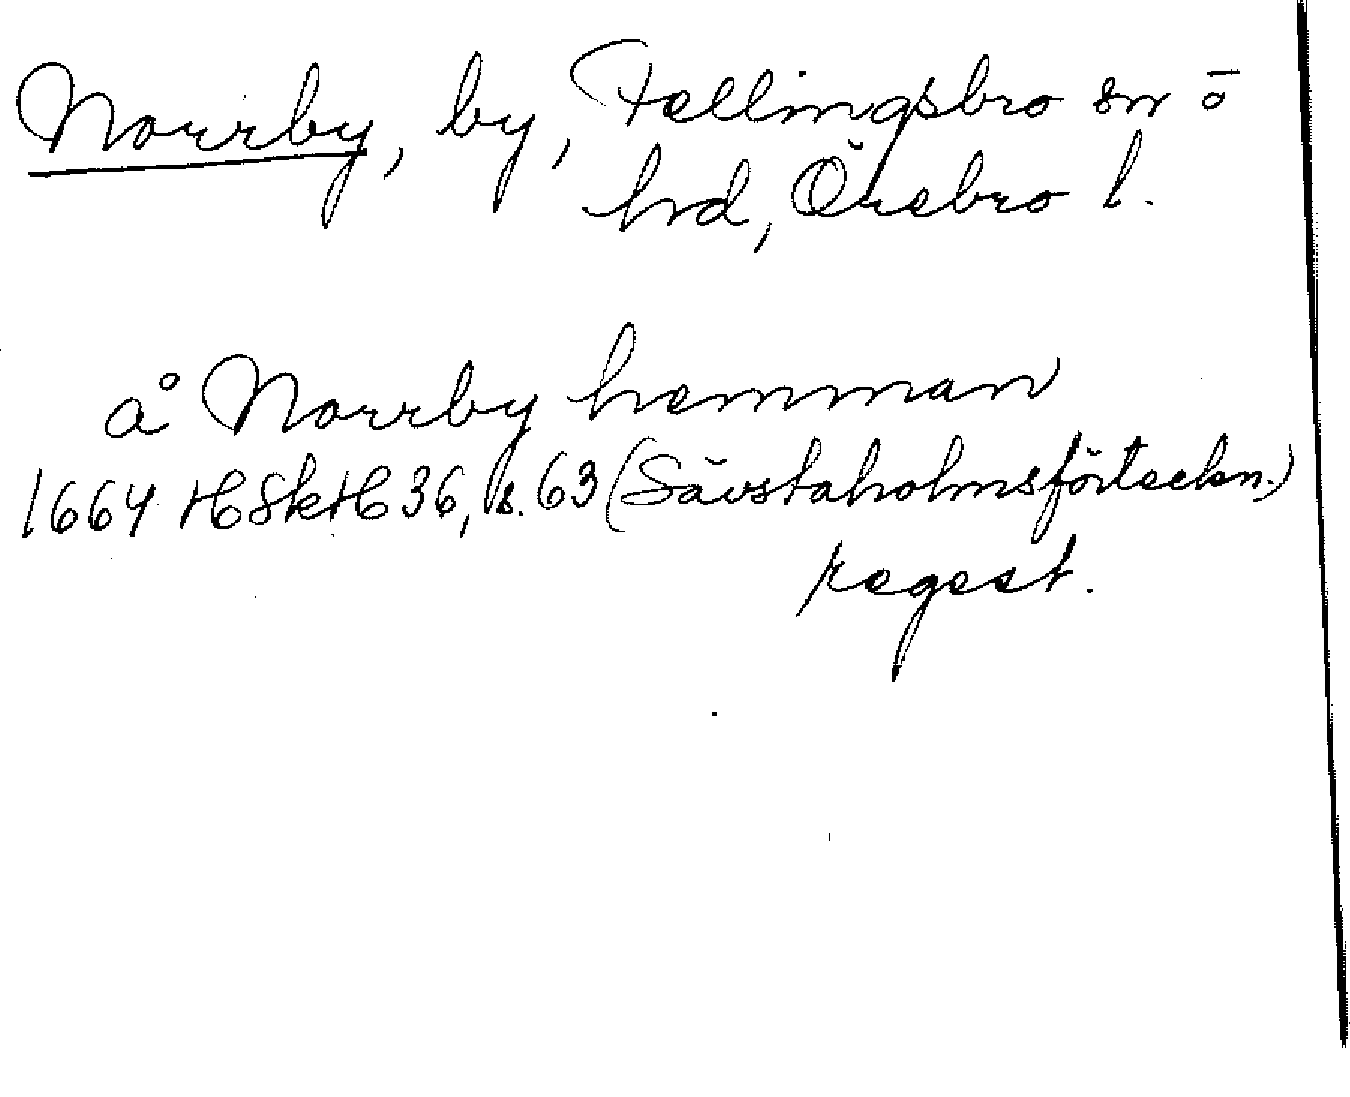 Norrby, by, Fellingsbro sn o
hrd, Örebro l.
å Norrby hemman
1664 HSkH 36, s. 63 (Sävstaholmsförteckn.)
regest.